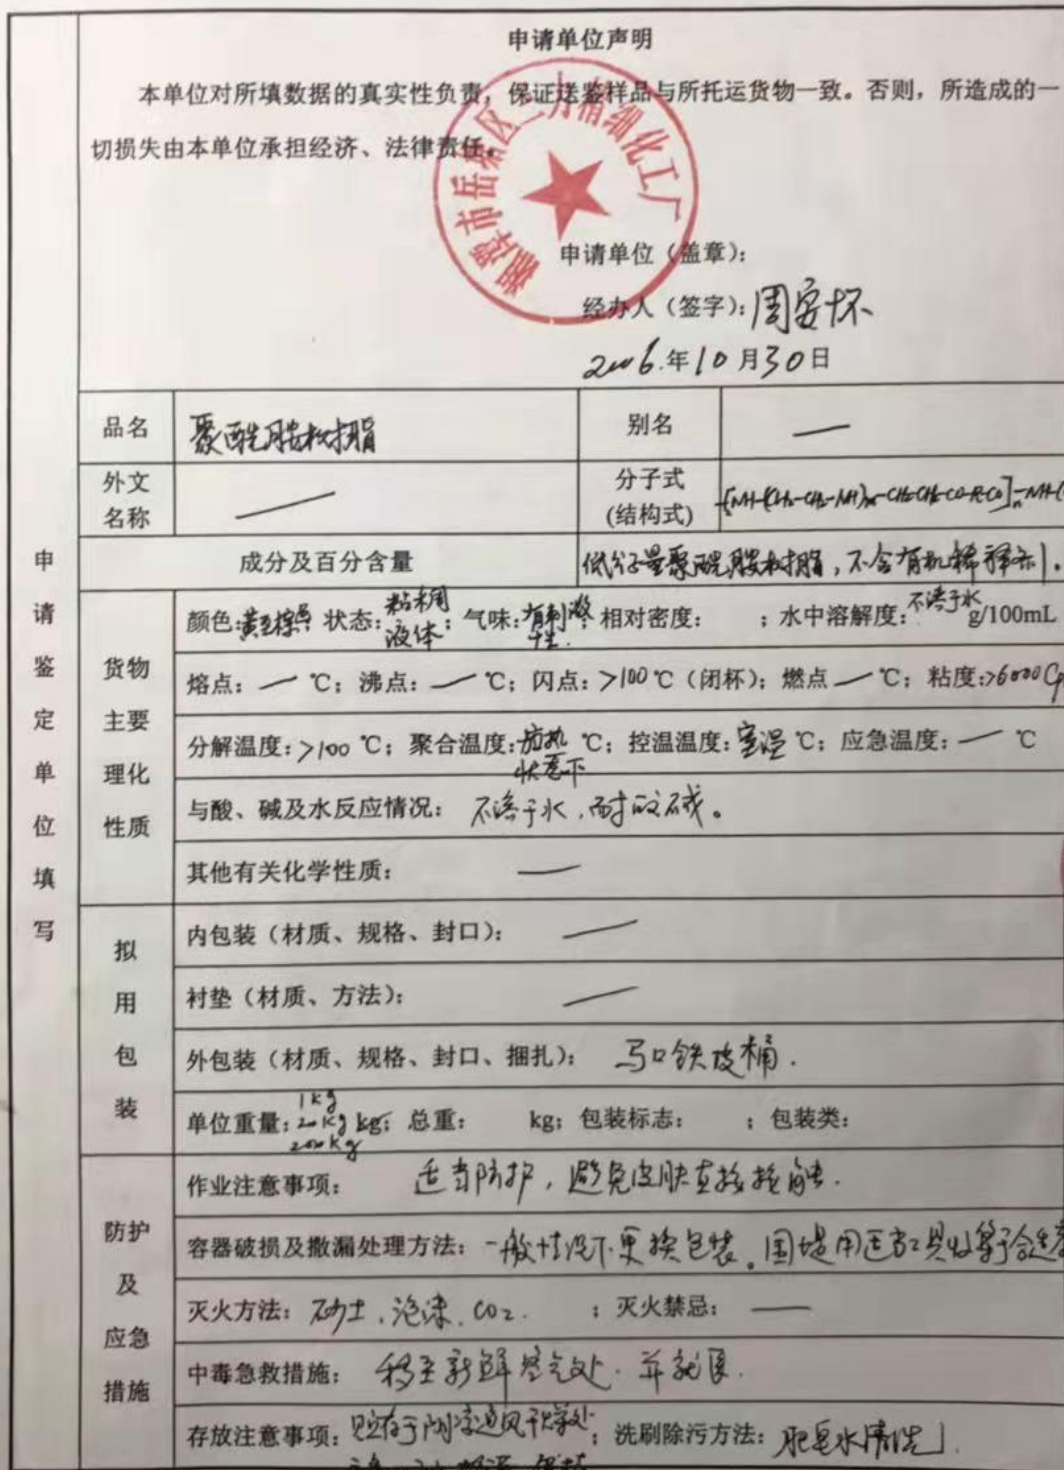 申请单位声明
本单位对所填数据的真实性负责，保证送鉴样品与所托运货物一致。否则，所造成的一
切损失由本单位承担经济、法律责任。
湘潭市岳塘区三力精细化工厂
申请单位（盖章）：
经办人（签字）：周安怀
2006.年10月30日
申请鉴定单位填写
品名 聚酰胺树脂 别名 —
外文名称 — 分子式(结构式)
成分及百分含量 低分子量聚酰胺树脂，不含有机稀释剂。
货物主要理化性质
颜色：黄至棕 状态：粘稠液体；气味：有刺激性.；相对密度： ；水中溶解度：不溶于水 g/100mL
熔点：— ℃；沸点：— ℃；闪点：>100℃（闭杯）；燃点 — ℃；粘度：>6000
分解温度：>100 ℃；聚合温度：加热状态下 ℃；控温温度：室温 ℃；应急温度：— ℃
与酸、碱及水反应情况： 不溶于水，耐酸碱。
其他有关化学性质： —
拟用包装
内包装（材质、规格、封口）： —
衬垫（材质、方法）： —
外包装（材质、规格、封口、捆扎）： 马口铁皮桶.
单位重量：1kg 20kg 200kg kg；总重： kg；包装标志： ；包装类：
防护及应急措施
作业注意事项： 适当防护，避免皮肤直接接触.
容器破损及撒漏处理方法：一般情况下更换包装。围堤用适当工具收集于合适
灭火方法：砂土，泡沫，CO2. ；灭火禁忌： —
中毒急救措施： 移至新鲜空气处.并就医.
存放注意事项：贮存于阴凉通风干燥处 ；洗刷除污方法：肥皂水清洗